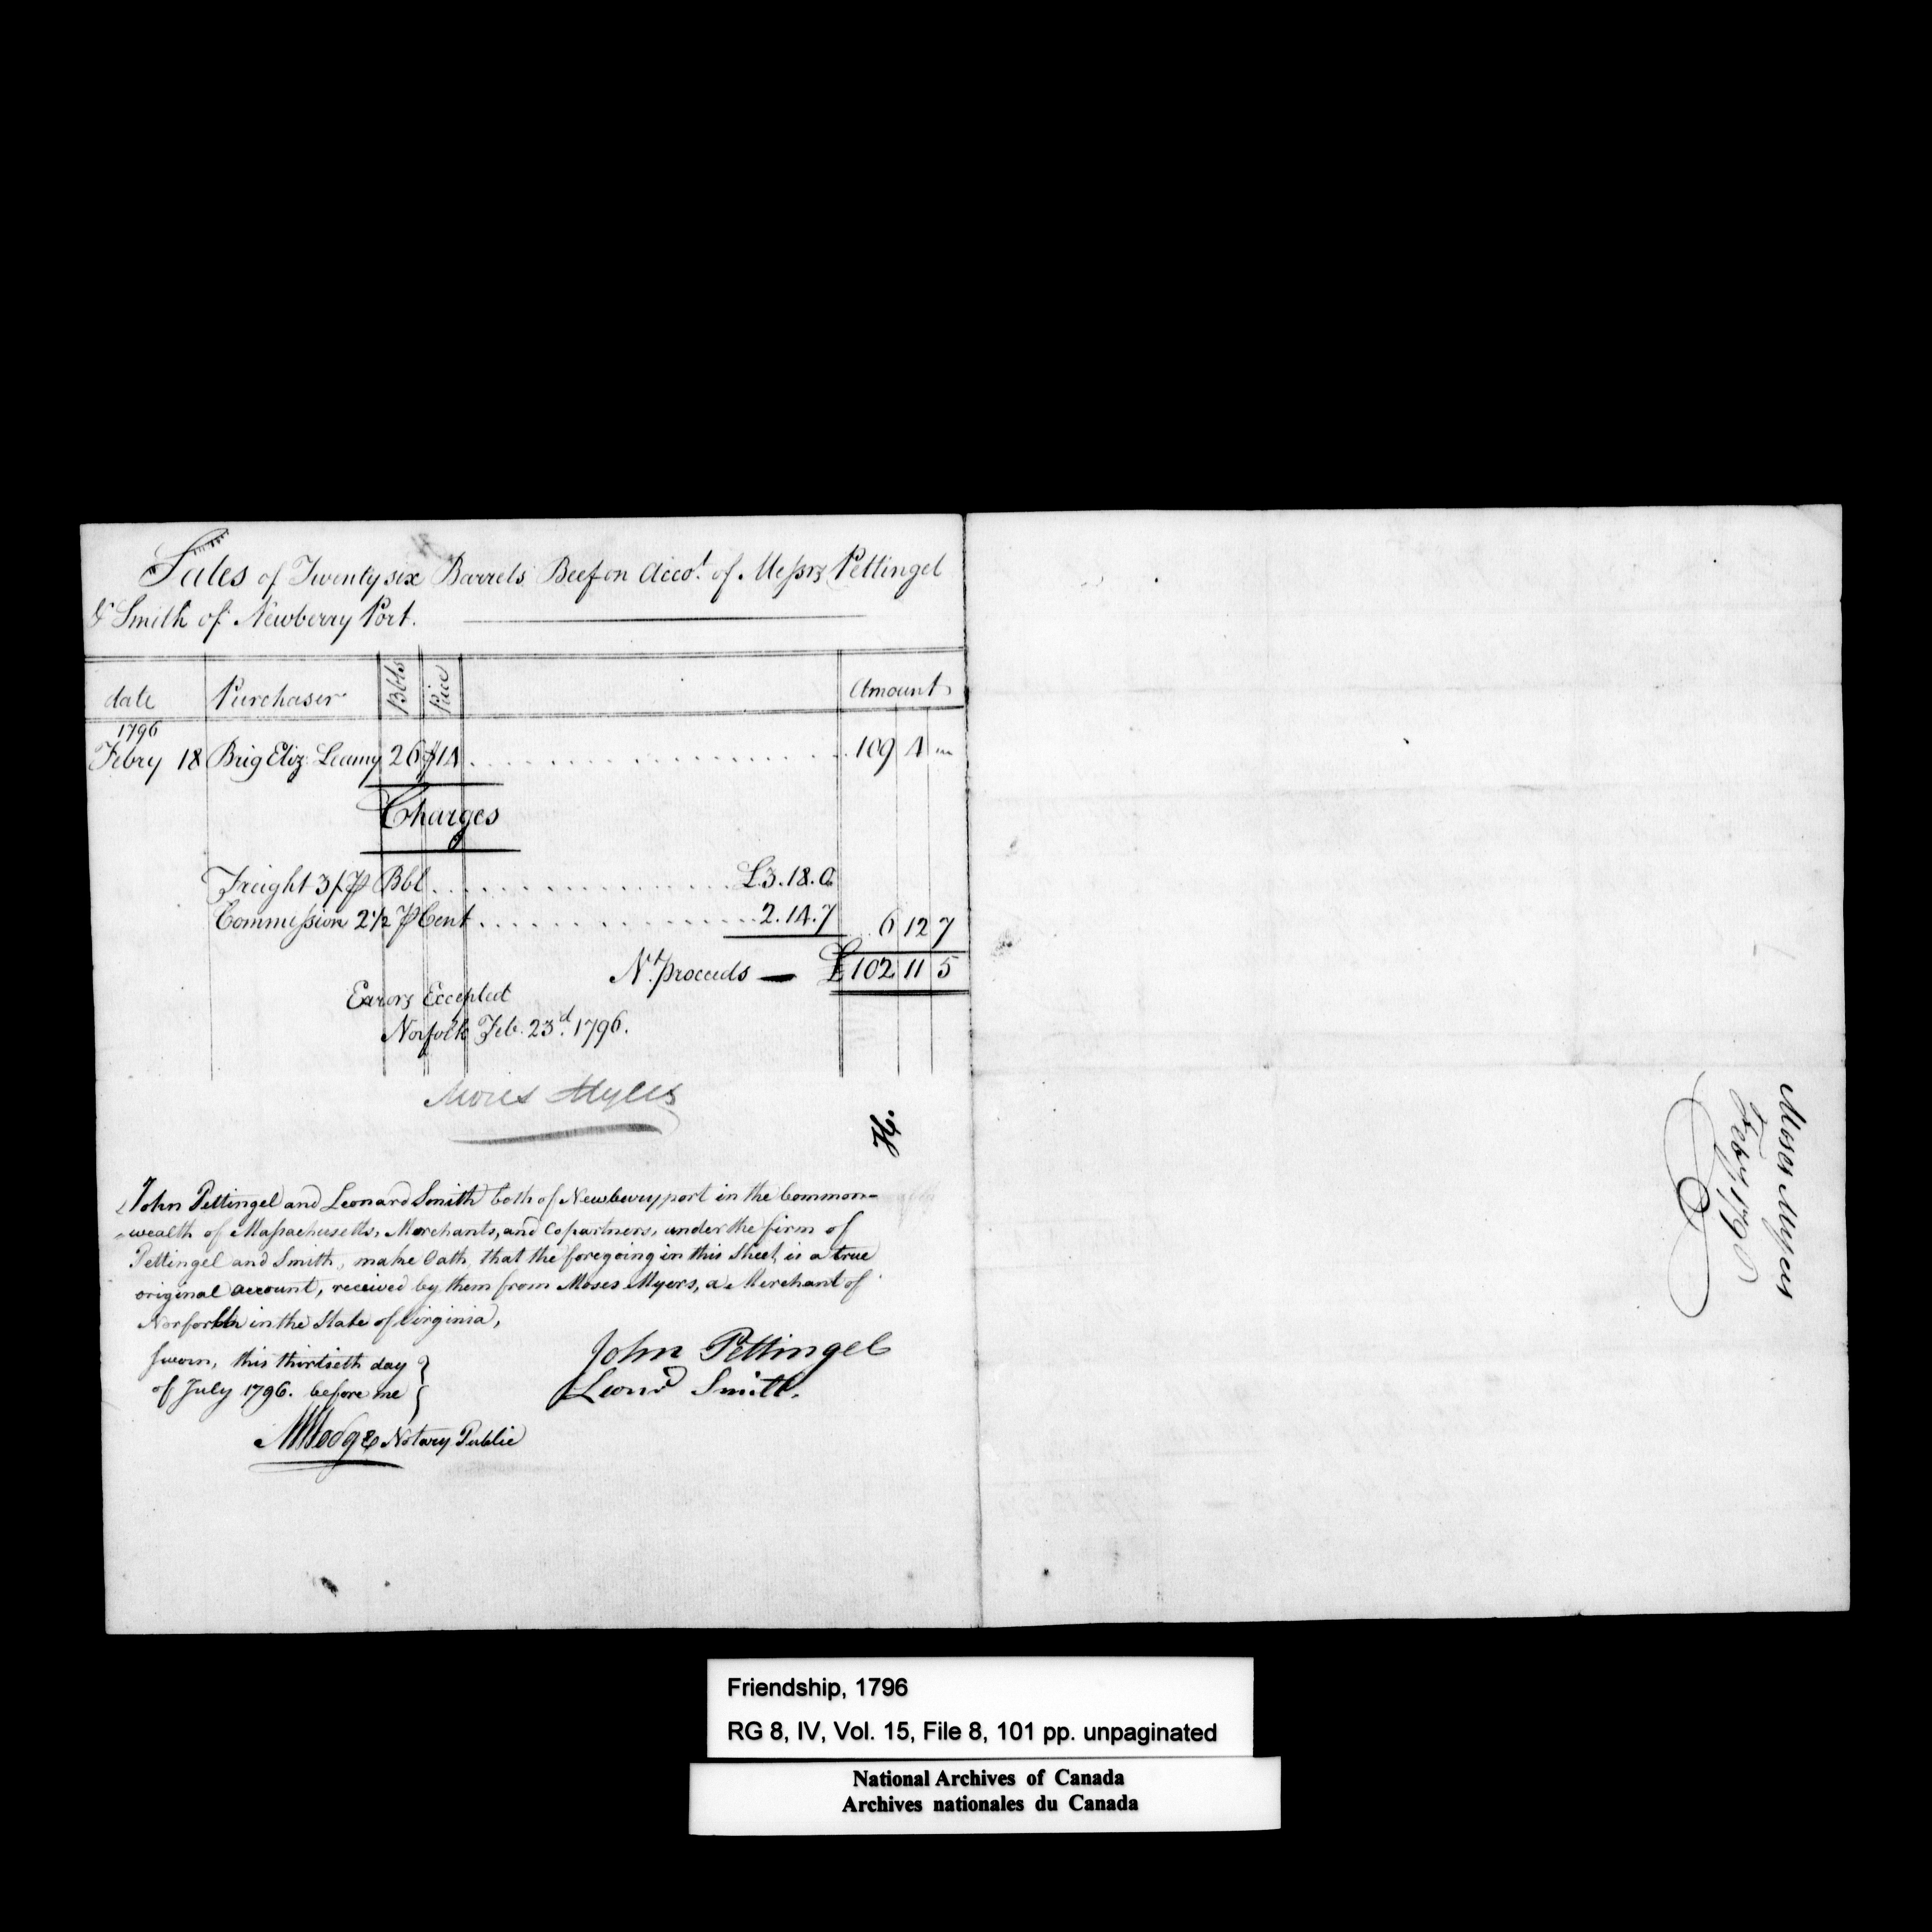 Sales of Twenty six Barrels Beef on Accot. of Messrs Pettingel
& Smith of Newberry Port.
date Purchaser Bbls Price Amount
1796
Febry 18 Brig Eliz: Leamy 26 $14 109 4 "
Charges
Freight 3/ ⅌ Bbl £3.18.0
Commission 2½ ⅌ Cent 2.14.7 6 12 7
Nt. proceeds — £ 102 11 5
Errors Eccepted
Norfolk Feb. 23d. 1796.
Moses Myers
H.
John Pettingel and Leonard Smith both of Newberryport in the Common=
=wealth of Massachusetts, Merchants, and Copartners, under the firm of
Pettingel and Smith, make Oath, that the foregoing in this Sheet, is a true
original account, received by them from Moses Myers, a Merchant of
Norforlk in the State of Virginia,
Sworn, this thirtieth day
of July 1796. before me
John Pettingel
Leond Smith.
M Hodge Notary Public
Moses Myers
Feby 1796
Friendship, 1796
RG 8, IV, Vol. 15, File 8, 101 pp. unpaginated
National Archives of Canada
Archives nationales du Canada